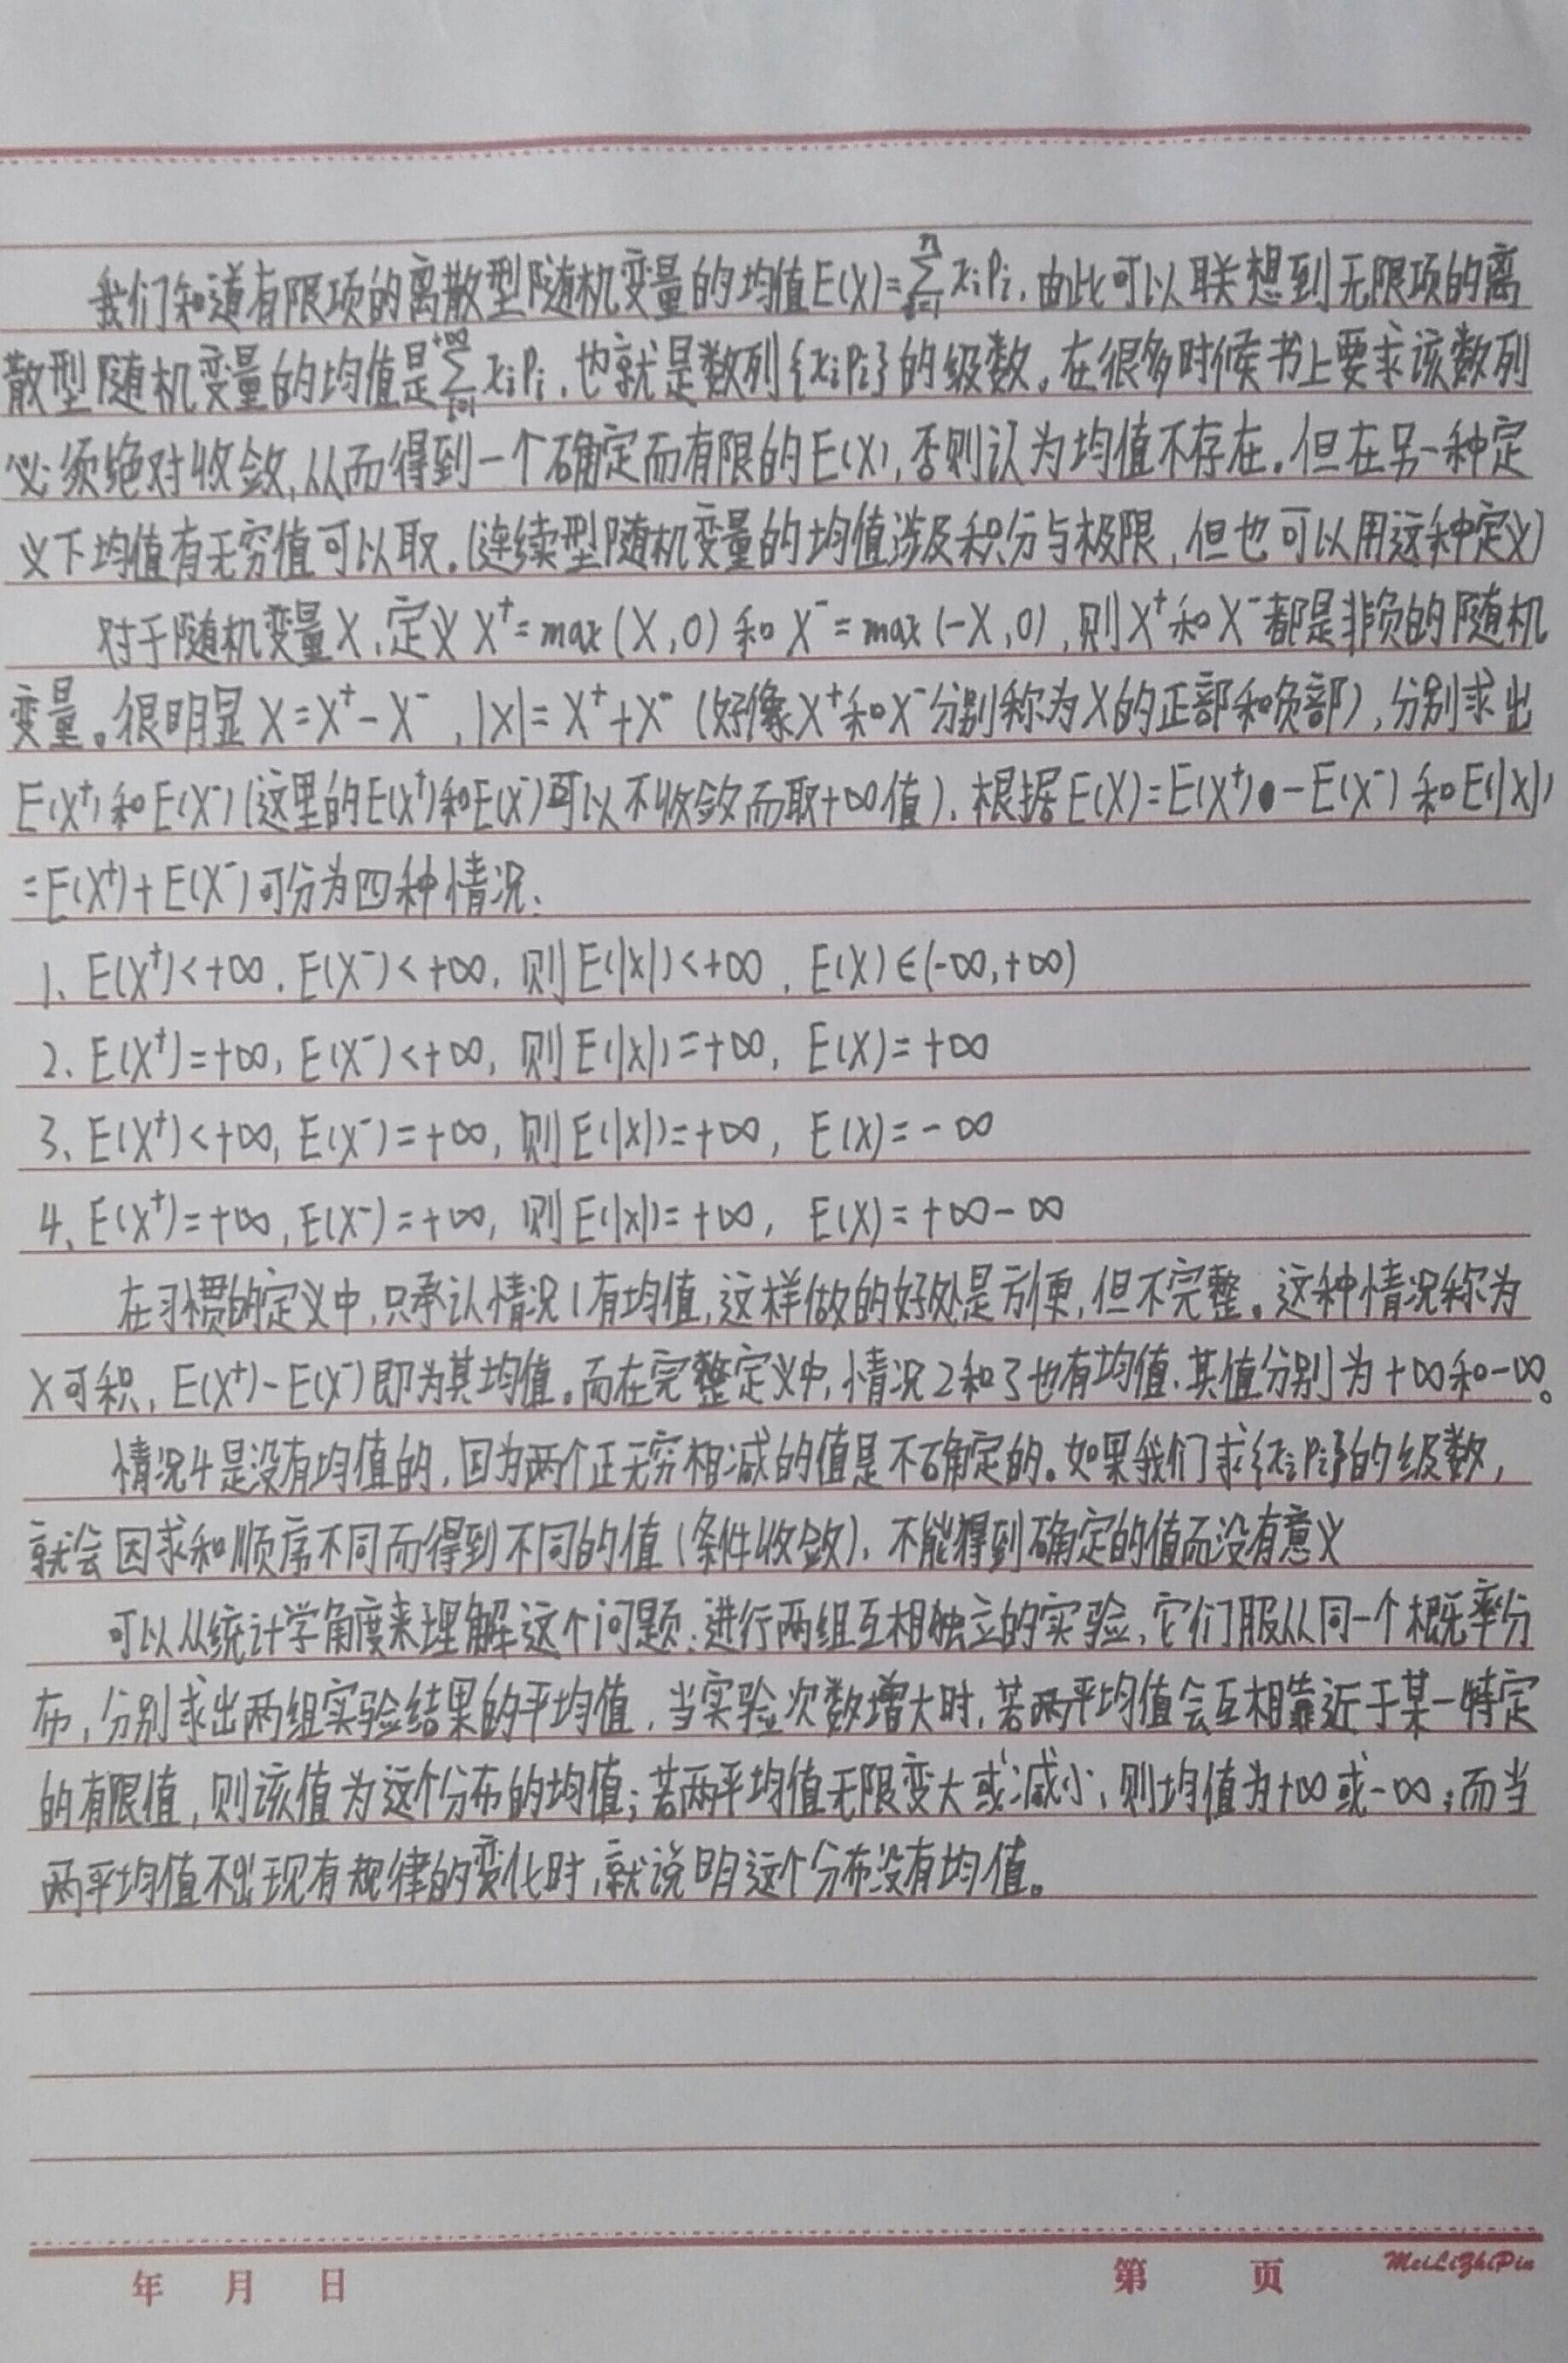 我们知道有限项的离散型随机变量的均值E(X)=∑_{i=1}^{n} xᵢPᵢ,由此可以联想到无限项的离
散型随机变量的均值是∑_{i=1}^{+∞} xᵢPᵢ,也就是数列{xᵢPᵢ}的级数。在很多时候书上要求该数列
必须绝对收敛,从而得到一个确定而有限的E(X),否则认为均值不存在。但在另一种定
义下均值有无穷值可以取。(连续型随机变量的均值涉及积分与极限,但也可以用这种定义)
对于随机变量X,定义X⁺=max(X,0)和X⁻=max(-X,0),则X⁺和X⁻都是非负的随机
变量。很明显X=X⁺-X⁻,|X|=X⁺+X⁻(好像X⁺和X⁻分别称为X的正部和负部),分别求出
E(X⁺)和E(X⁻)(这里的E(X⁺)和E(X⁻)可以不收敛而取+∞值),根据E(X)=E(X⁺)-E(X⁻)和E(|X|)
=E(X⁺)+E(X⁻)可分为四种情况:
1、E(X⁺)<+∞,E(X⁻)<+∞,则E(|X|)<+∞,E(X)∈(-∞,+∞)
2、E(X⁺)=+∞,E(X⁻)<+∞,则E(|X|)=+∞,E(X)=+∞
3、E(X⁺)<+∞,E(X⁻)=+∞,则E(|X|)=+∞,E(X)=-∞
4、E(X⁺)=+∞,E(X⁻)=+∞,则E(|X|)=+∞,E(X)=+∞-∞
在习惯的定义中,只承认情况1有均值,这样做的好处是方便,但不完整。这种情况称为
X可积,E(X⁺)-E(X⁻)即为其均值。而在完整定义中,情况2和3也有均值,其值分别为+∞和-∞。
情况4是没有均值的,因为两个正无穷相减的值是不确定的。如果我们求{xᵢPᵢ}的级数,
就会因求和顺序不同而得到不同的值(条件收敛),不能得到确定的值而没有意义
可以从统计学角度来理解这个问题:进行两组互相独立的实验,它们服从同一个概率分
布,分别求出两组实验结果的平均值,当实验次数增大时,若两平均值会互相靠近于某一特定
的有限值,则该值为这个分布的均值;若两平均值无限变大或减小,则均值为+∞或-∞;而当
两平均值不出现有规律的变化时,就说明这个分布没有均值。
年 月 日 第 页 MeiLiZhiPin